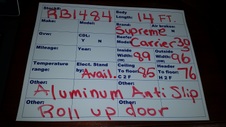 RB1484 Body Length: 14 FT.
Make: Brand: Supreme
Gvw: CDL: Y N Carrier 30
Mileage: Year: Inside Width: 89 Inside 96
Temperature range: Elect. Stand by: Avail. Ceiling To floor: 85 To floor: 76
Other: Aluminum Anti Slip
Other: Roll up door Other: